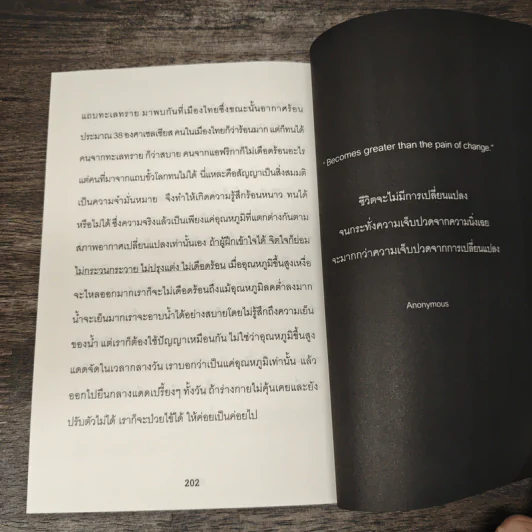 แถบทะเลทราย มาพบกันที่เมืองไทยซึ่งขณะนั้นอากาศร้อน
ประมาณ 38 องศาเซลเซียส คนในเมืองไทยก็ว่าร้อนมาก แต่ก็ทนได้
คนจากทะเลทราย ก็ว่าสบาย คนจากแอฟริกาก็ไม่เดือดร้อนอะไร
แต่คนที่มาจากแถบขั้วโลกทนไม่ได้ นี่แหละคือสัญญาเป็นสิ่งสมมติ
เป็นความจำมั่นหมาย จึงทำให้เกิดความรู้สึกร้อนหนาว ทนได้
หรือไม่ได้ ซึ่งความจริงแล้วเป็นเพียงแค่อุณหภูมิที่แตกต่างกันตาม
สภาพอากาศเปลี่ยนแปลงเท่านั้นเอง ถ้าผู้ฝึกเข้าใจได้ จิตใจก็ย่อม
ไม่กระวนกระวาย ไม่ปรุงแต่ง ไม่เดือดร้อน เมื่ออุณหภูมิขึ้นสูงเหงื่อ
จะไหลออกมากเราก็จะไม่เดือดร้อนถึงแม้อุณหภูมิลดต่ำลงมาก
น้ำจะเย็นมากเราจะอาบน้ำได้อย่างสบายโดยไม่รู้สึกถึงความเย็น
ของน้ำ แต่เราก็ต้องใช้ปัญญาเหมือนกัน ไม่ใช่ว่าอุณหภูมิขึ้นสูง
แดดจัดในเวลากลางวัน เราบอกว่าเป็นแค่อุณหภูมิเท่านั้น แล้ว
ออกไปยืนกลางแดดเปรี้ยงๆ ทั้งวัน ถ้าร่างกายไม่คุ้นเคยและยัง
ปรับตัวไม่ได้ เราก็จะป่วยไข้ได้ ให้ค่อยเป็นค่อยไป
202
"Becomes greater than the pain of change."
ชีวิตจะไม่มีการเปลี่ยนแปลง
จนกระทั่งความเจ็บปวดจากความนิ่งเฉย
จะมากกว่าความเจ็บปวดจากการเปลี่ยนแปลง
Anonymous